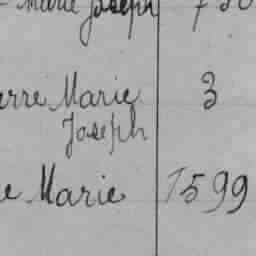 Marie Joseph
erre Marie 3
Joseph
e Marie 1599